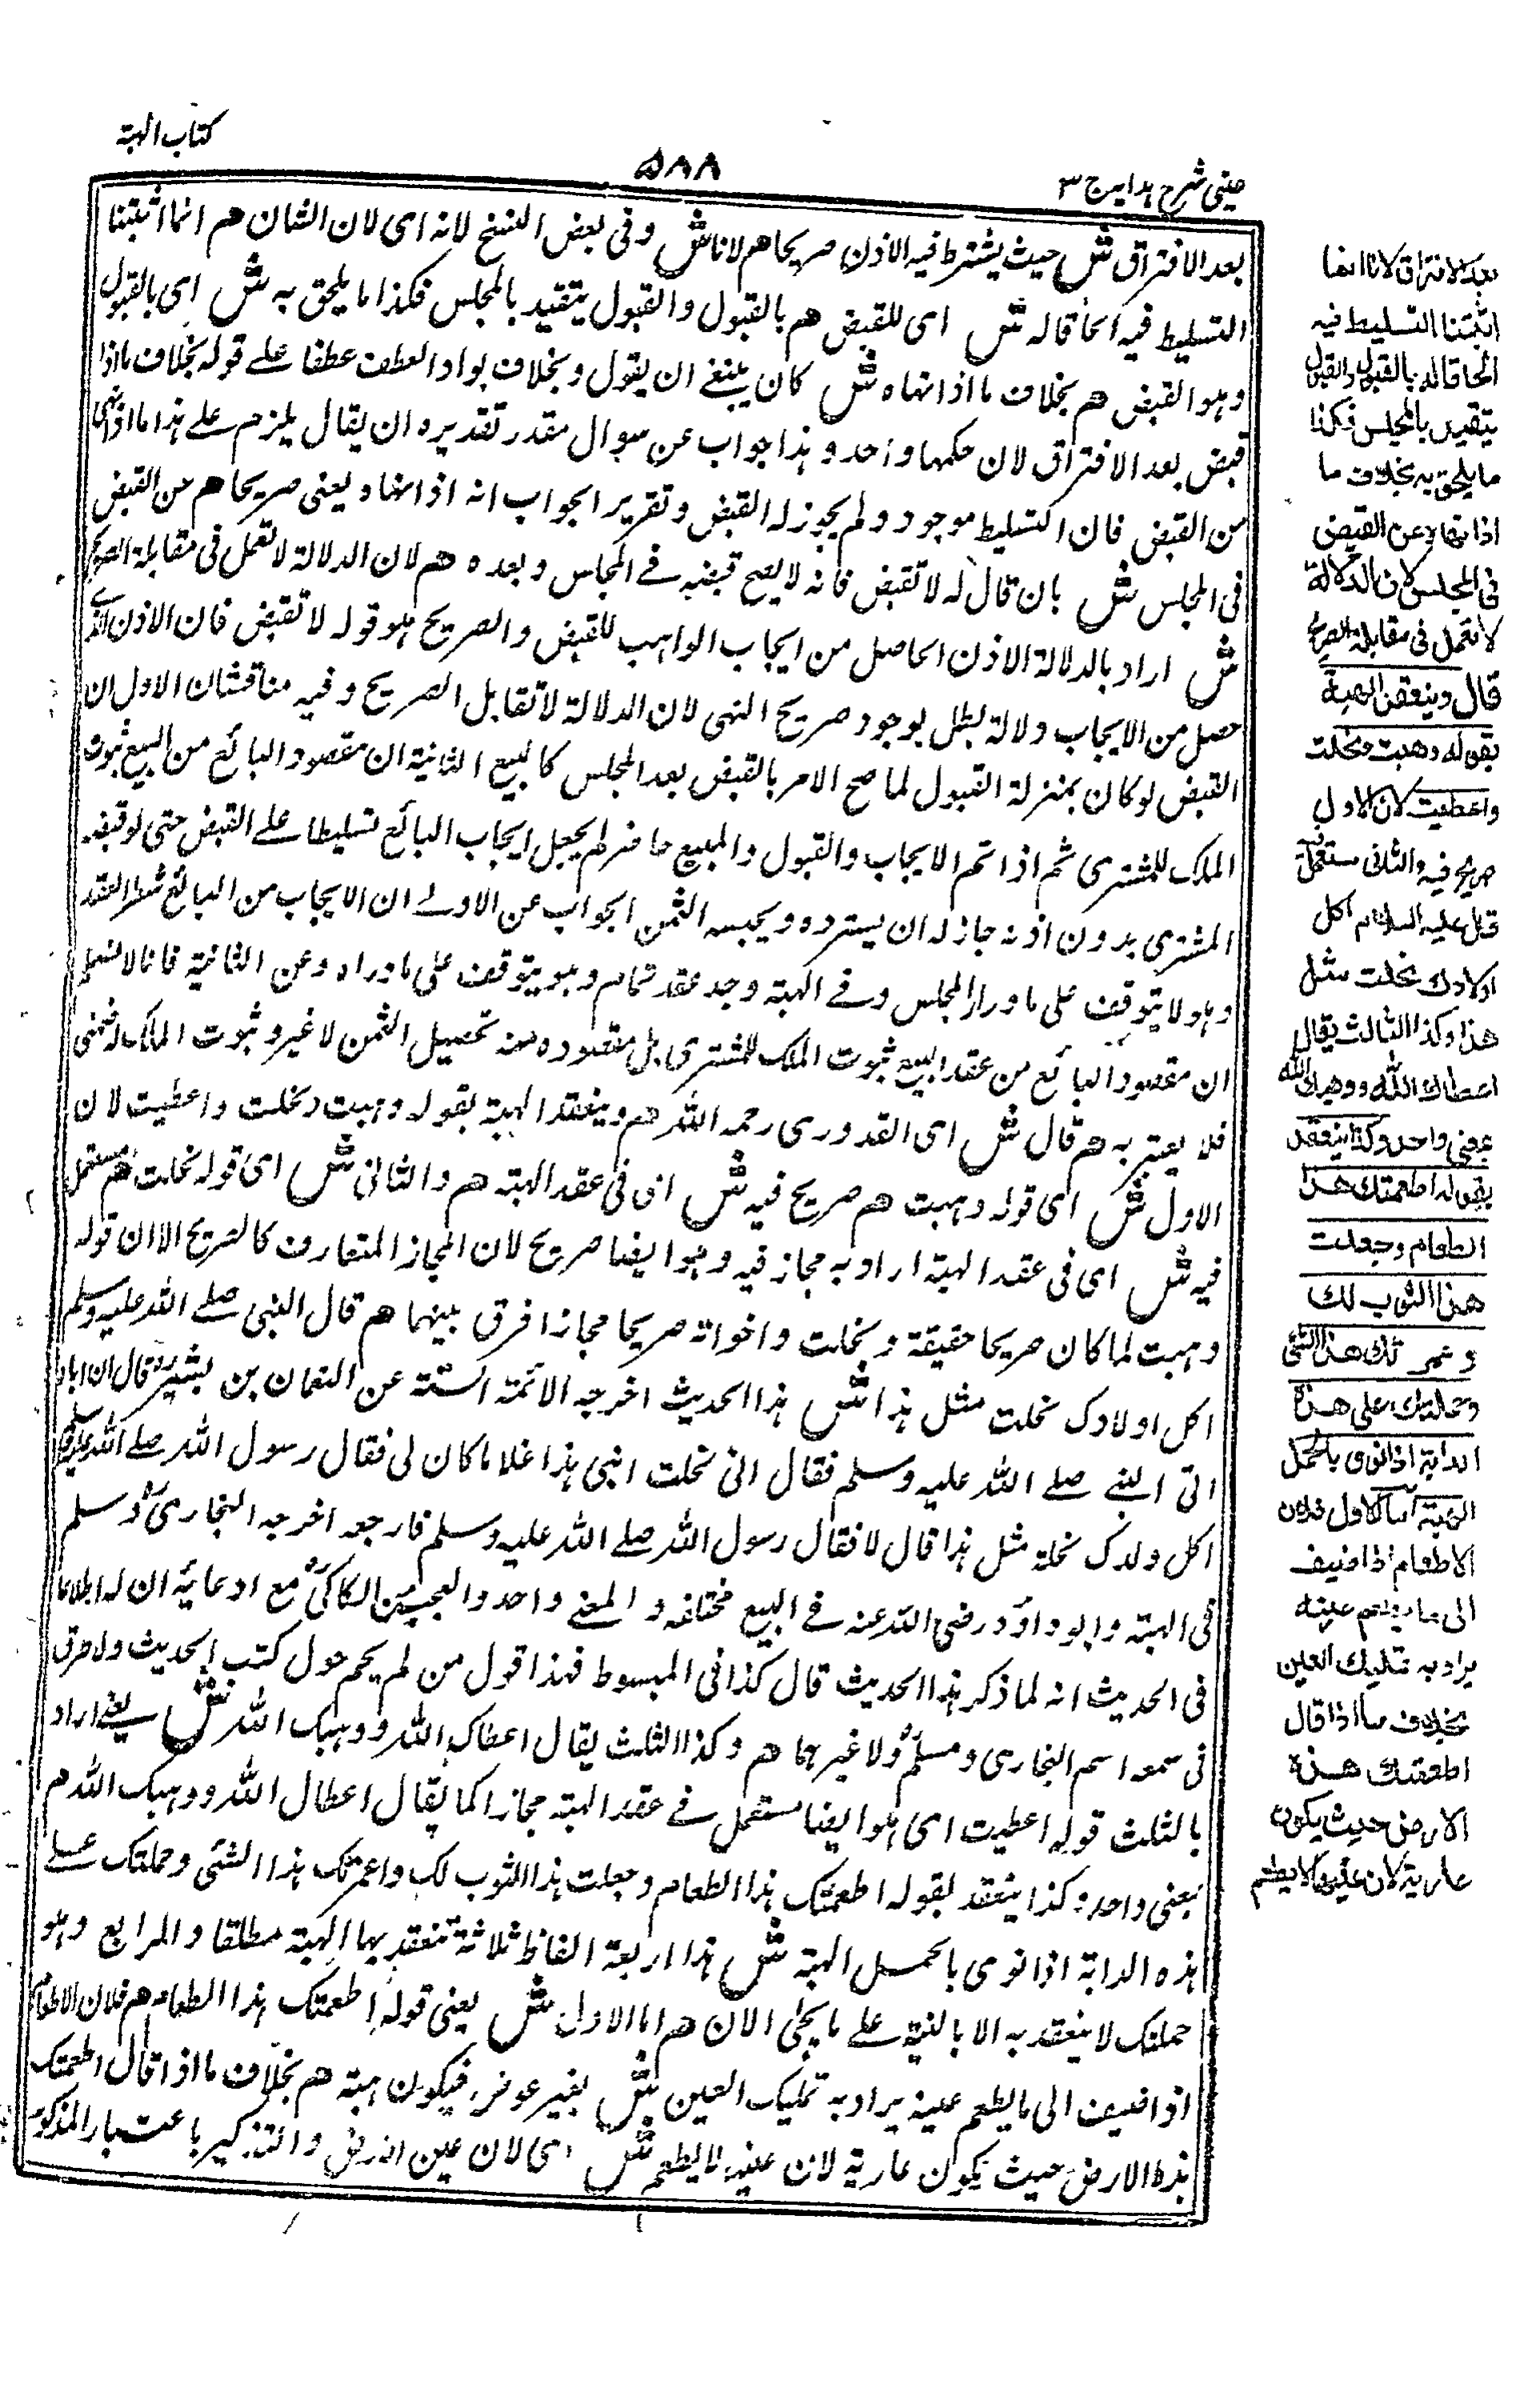 كتاب الهبة
٥٨٨
عينى شرح هدايه ج ٣
بعد الافتراق ش حيث يشترط فيه الاذن صريحا هم لانا ش وفى بعض النسخ لانه اى لان الشان هم انما اثبتنا
التسليط فيه الحاقا له ش اى للقبض هم بالقبول والقبول يتقيد بالمجلس فكذا ما يلحق به ش اى بالقبول
وهو القبض هم بخلاف ما اذا نهاه ش كان ينبغے ان يقول وبخلاف بواو العطف عطفا علے قوله بخلاف ما اذا
قبض بعد الافتراق لان حكمهما واحد وهذا جواب عن سوال مقدر تقديره ان يقال يلزم علے هذا ما اذا نهى
من القبض فان التسليط موجود ولم يجوز له القبض وتقرير الجواب انه اذا نهاه يعنى صريحا هم عن القبض
فى المجلس ش بان قال له لا تقبض فانه لا يصح قبضه فے المجلس وبعده هم لان الدلالة لا تعمل فى مقابلة الصريح
ش اراد بالدلالة الاذن الحاصل من ايجاب الواهب للقبض والصريح هو قوله لا تقبض فان الاذن الذے
حصل من الايجاب دلالة بطل بوجود صريح النهى لان الدلالة لا تقابل الصريح وفيه مناقشتان الاول ان
القبض لو كان بمنزلة القبول لما صح الامر بالقبض بعد المجلس كالبيع الثانية ان مقصود البائع من البيع ثبوت
الملك للمشترى ثم اذا تم الايجاب والقبول والمبيع حاضر لم يجعل ايجاب البائع تسليطا علے القبض حتى لو قبضه
المشترى بدون اذنه جاز له ان يسترده ويحبسه الثمن الجواب عن الاولے ان الايجاب من البائع شطر العقد
وهو لا يتوقف على ما وراء المجلس وفے الهبة وجد عقد تمام وهو يتوقف على ما وراه وعن الثانية فانا لا نسلم
ان مقصود البائع من عقد البيع ثبوت الملك للمشترى بل مقصوده منه تحصيل الثمن لا غير وثبوت الملك له ضمنى
فلا يعتبر به هم قال ش اى القدورى رحمه الله هم وينعقد الهبة بقوله وهبت ونحلت واعطيت لان
الاول ش اى قوله وهبت هم صريح فيه ش اى فى عقد الهبة هم والثانى ش اى قوله نحلت هم مستعمل
فيه ش اى فى عقد الهبة اراد به مجاز فيه وهو ايضا صريح لان المجاز المتعارف كالصريح الا ان قوله
وهبت لما كان صريحا حقيقة ونحلت واخواته صريحا مجازا فرق بينهما هم قال النبى صلے الله عليه وسلم
اكل اولادك نحلت مثل هذا ش هذا الحديث اخرجه الائمة الستة عن النعمان بن بشير قال ان اباه
اتى النبے صلے الله عليه وسلم فقال انى نحلت ابنى هذا غلاما كان لى فقال رسول الله صلے الله عليه وسلم
اكل ولدك نحلة مثل هذا قال لا فقال رسول الله صلے الله عليه وسلم فارجعه اخرجه البخارى ومسلم
فى الهبة وابو داؤد رضى الله عنه فے البيع مختلفه والمعنے واحد والعجب من الكاكى مع ادعائه ان له اطلاعا
فى الحديث انه لما ذكر هذا الحديث قال كذا فى المبسوط فهذا قول من لم يحم حول كتب الحديث ولا طرق
فى سمعه اسم البخارى ومسلم ولا غيرهما هم وكذا الثالث يقال اعطاك الله ووهبك الله ش يعنے اراد
بالثلث قوله اعطيت اى هو ايضا مستعمل فے عقد الهبة مجازا كما يقال اعطاك الله ووهبك الله م
بمعنى واحد وكذا ينعقد بقوله اطعمتك هذا الطعام وجعلت هذا الثوب لك واعمرتك هذا الشئى وحملتك علے
هذه الدابة اذا نوى بالحمل الهبة ش هذا اربعة الفاظ ثلاثة تنعقد بها الهبة مطلقا والرابع وهو
حملتك لا ينعقد به الا بالنية علے ما يجئ الان هم اما الاول ش يعنى قوله اطعمتك هذا الطعام هم فلان الاطعام
اذا اضيف الى ما يطعم عينه يراد به تمليك العين ش بغير عوض فيكون هبة هم بخلاف ما اذا قال اطعمتك
هذه الارض حيث يكون عارية لان عينها لا يطعم ش اى لان عين الارض والتذكير باعتبار المذكور
بعد الافتراق لانا انما
اثبتنا التسليط فيه
الحاقا له بالقبول والقبول
يتقيد بالمجلس فكذا
ما يلحق به بخلاف ما
اذا نهاه عن القبض
فى المجلس لان الدلالة
لا تعمل فى مقابلة الصريح
قال وينعقد الهبة
بقوله وهبت ونحلت
واعطيت لان الاول
صريح فيه والثانى مستعمل
قال عليه السلام اكل
اولادك نحلت مثل
هذا وكذا الثالث يقال
اعطاك الله ووهبك الله
بمعنى واحد وكذا ينعقد
بقوله اطعمتك هذا
الطعام وجعلت
هذا الثوب لك
و عمر تك هذا الشئ
وحملتك على هذه
الدابة اذا نوى بالحمل
الهبة اما الاول فلان
الاطعام اذا اضيف
الى ما يطعم عينه
يراد به تمليك العين
بخلاف ما اذا قال
اطعمتك هذه
الارض حيث يكون
عارية لان عينها لا يطعم